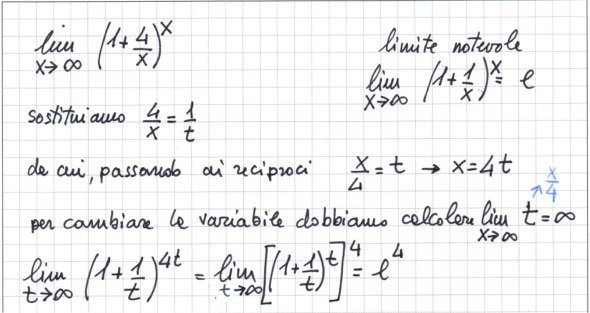 lim x→∞ (1+4/x)^x
limite notevole
lim x→∞ (1+1/x)^x = e
sostituiamo 4/x = 1/t
da cui, passando ai reciproci x/4 = t → x=4t
x/4
per cambiare la variabile dobbiamo calcolare lim x→∞ t = ∞
lim t→∞ (1+1/t)^4t = lim t→∞ [(1+1/t)^t]^4 = e^4